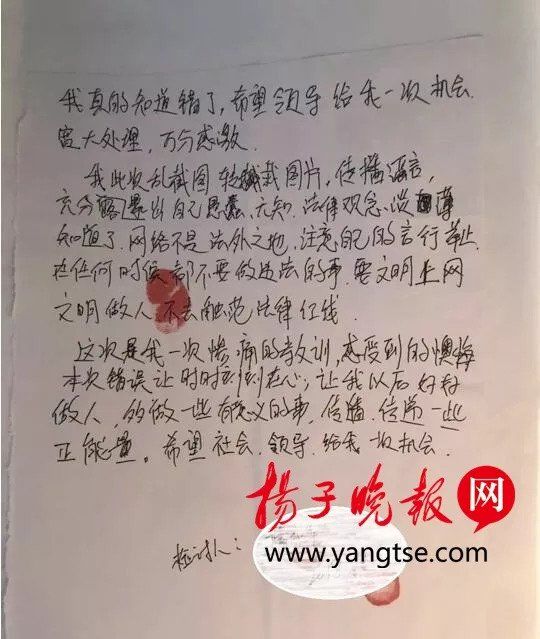 我真的知道错了，希望领导给我一次机会.
宽大处理，万分感激.
我此次乱截图 转载图片，传播谣言，
充分暴露出自己愚蠢、无知、法律观念淡薄
知道了.网络不是法外之地，注意自己的言行举止.
在任何时候都不要做违法的事.要文明上网
文明做人 不去触范法律红线.
这次是我一次惨痛的教训，感受到的懊悔
本次错误让时时刻刻在心；让我以后好好
做人，多做一些有意义的事，传播.传学一些
正能量。希望社会.领导.给我一次机会.
扬子晚报网
检讨人：
www.yangtse.com